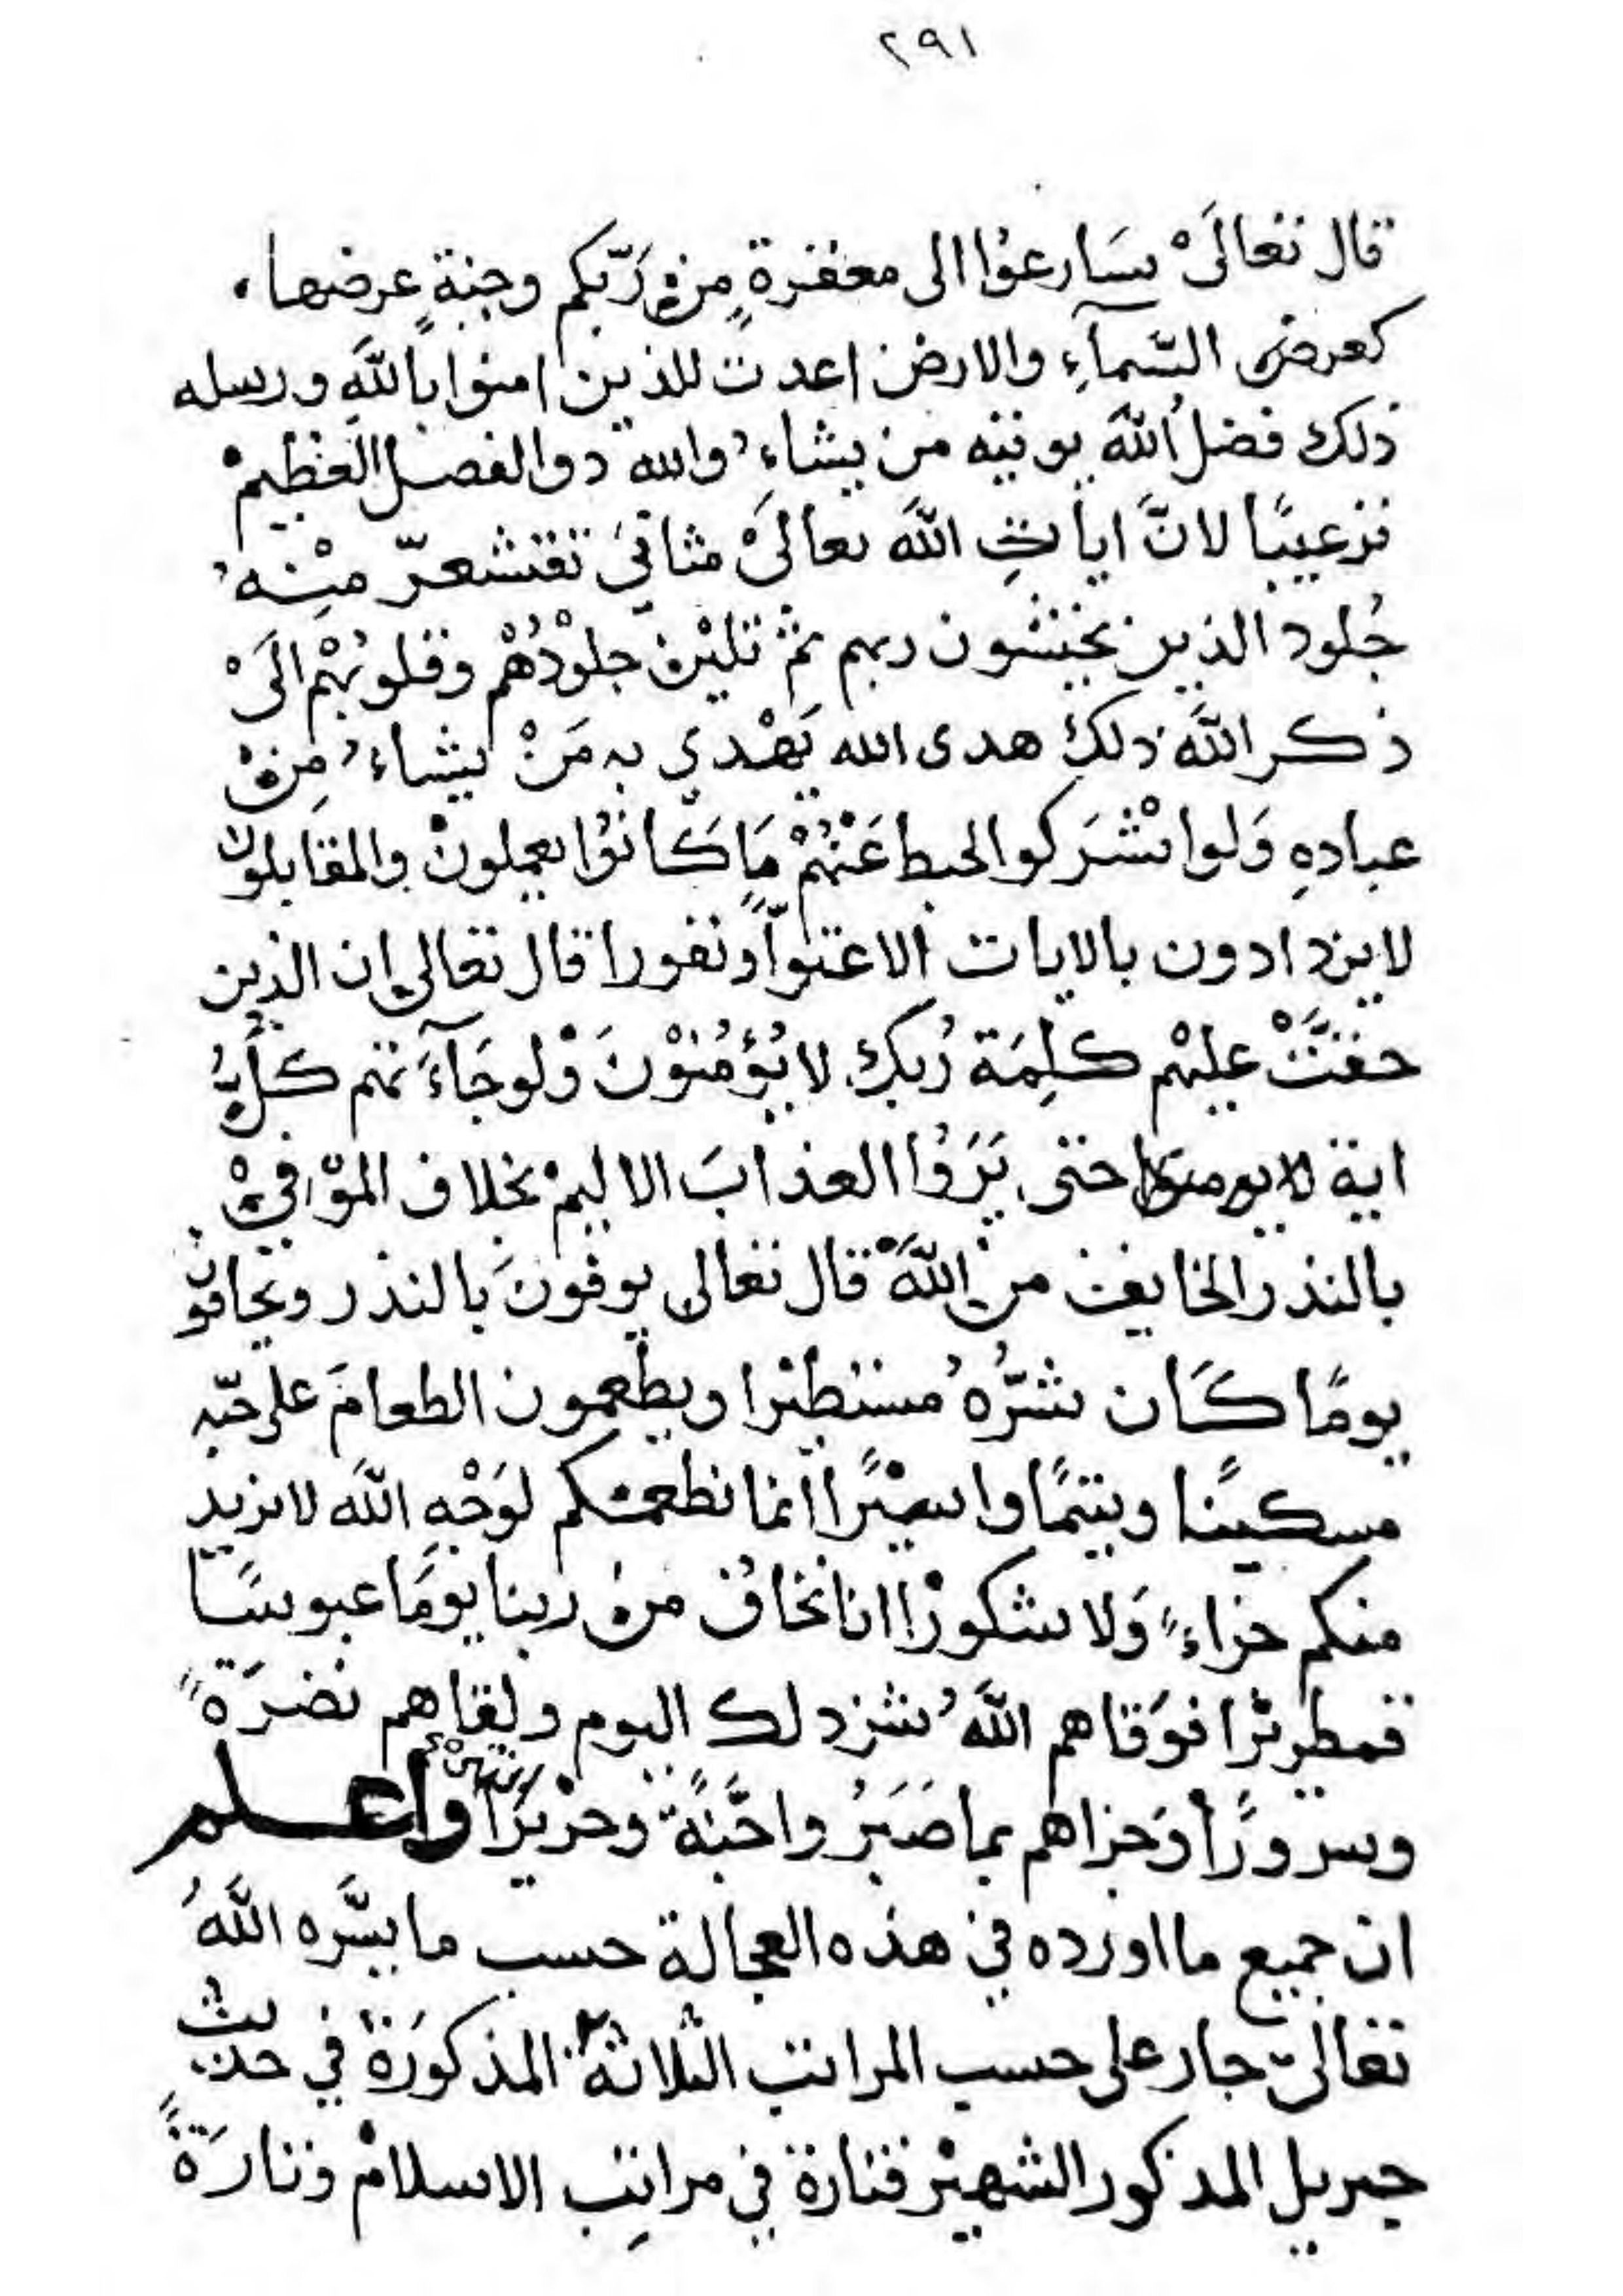 ٢٩١
قال تعالىْ سَارعوُا الى مغفرةٍ منْ رَبّكم وجنةٍ عرضها،
كعرض السّمآءِ والارض اعدت للذين امنوا باللهِ ورسله
ذلك فضلُ اللهَ يوتيه من يشاءُ والله ذوا الفضل العَظيمْ
ترغيبًا لانَّ اياتِ اللهَ تعالىْ مثانيَ تقشعرّ مِنْهُ
جُلود الذين يخشون ربهم ثمّ تليْن جلوْدُهُمْ وقلوبُهْم الَىْ
ذكر اللهَ ذلكَ هدى الله يَهْدي به مَنْ يشاءُ مِنْ
عبادهِ وَلوا شْرَكوا لحبط عَنْهُمْ مَا كَانوُا يعملونْ والمقابلون
لا يزدادون بالايات الا عتوّاً ونفورا قال تعالى ان الذين
حقتَّْ عليهْم كلِمَة رُبك لا يُؤمُنوْنَ وْلو جَآءَتهم كلُّ
اية لا يومنوا حتى يَرَوُا العذابَ الاليمْ بخلاف الموْافيْ
بالنذر الخايف من اللهَ قال تعالى يوفونَ بالنذر ويخافون
يومًا كَان شرُّهُ مستطيْرا ويطعمون الطعامَ على حبّه
مسكينًا ويتيمًا واسيْرًا انما نطعمكم لوَجْهِ اللهَ لا نريد
منكم جزاءً وَلا شكورْا انا نخافُ منْ ربنا يومَا عبوسًا
قمطريْرا فوَقاهم اللهَُ شر ذلك اليوم ولقاهم نضرَةً
وسرورًا وَجزاهم بما صَبَرُ واجَّنةً وحرْيرًا وَاعلم
ان جميع ما اورده في هذه العجالة حسب ما يسَّره اللهَُ
تعالىّ جار على حسب المراتب الثلاثة المذكورَة في حديث
جبريل المذكور الشهيْر فتارة في مراتِب الاسلامْ وتارَةً